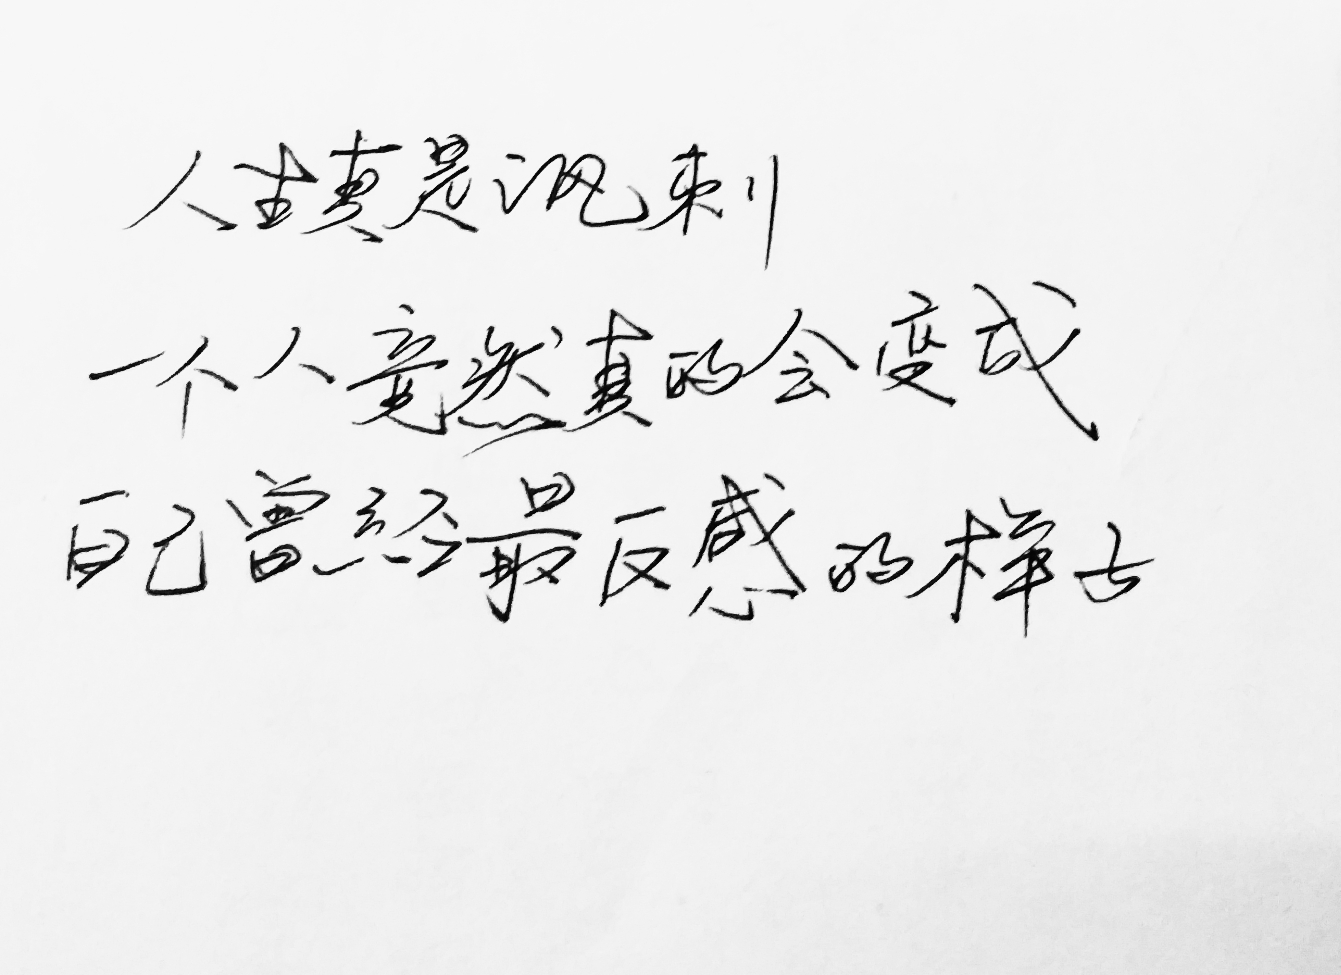 人生真是讽刺
一个人竟然真的会变成
自己曾经最反感的样子